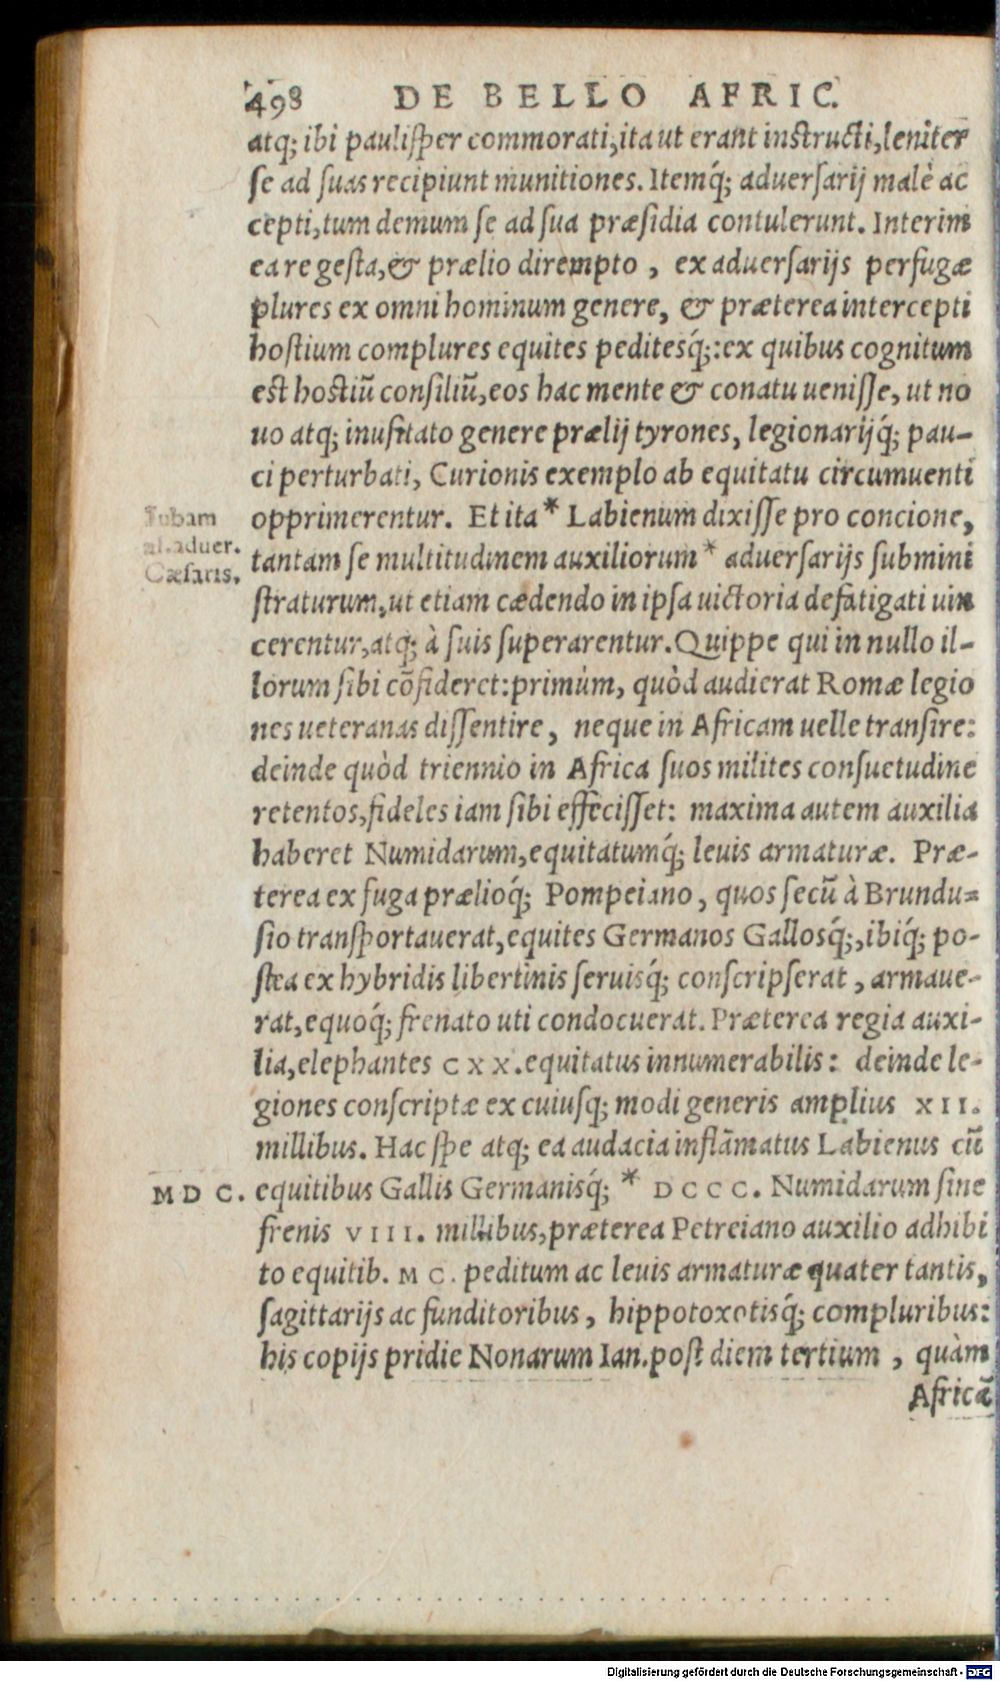 498 DE BELLO AFRIC.
atq; ibi paulisper commorati, ita ut erant instructi, leniter
se ad suas recipiunt munitiones. Itemq́; aduersarij malè ac
cepti, tum demum se ad sua præsidia contulerunt. Interim
ea re gesta, & prælio dirempto, ex aduersarijs perfugæ
plures ex omni hominum genere, & præterea intercepti
hostium complures equites peditesq́;: ex quibus cognitum
est hostiũ consiliũ, eos hac mente & conatu uenisse, ut no
uo atq; inusitato genere prælij tyrones, legionarijq́; pau-
ci perturbati, Curionis exemplo ab equitatu circumuenti
Iubam opprimerentur. Et ita * Labienum dixisse pro concione,
al. aduer. tantam se multitudinem auxiliorum * aduersarijs submini
Cæsaris. straturum, ut etiam cædendo in ipsa uictoria defatigati uin
cerentur, atq; à suis superarentur. Quippe qui in nullo il-
lorum sibi cõfideret: primùm, quòd audierat Romæ legio
nes ueteranas dissentire, neque in Africam uelle transire:
deinde quòd triennio in Africa suos milites consuetudine
retentos, fideles iam sibi effecisset: maxima autem auxilia
haberet Numidarum, equitatumq́; leuis armaturæ. Præ-
terea ex fuga prælioq́; Pompeiano, quos secũ à Brundu-
sio transportauerat, equites Germanos Gallosq́;, ibiq́; po-
stea ex hybridis libertinis seruisq́; conscripserat, armaue-
rat, equoq́; frenato uti condocuerat. Præterea regia auxi-
lia, elephantes CXX. equitatus innumerabilis: deinde le-
giones conscriptæ ex cuiusq; modi generis amplius XII.
millibus. Hac spe atq; ea audacia inflãmatus Labienus cũ
MDC. equitibus Gallis Germanisq́; * DCCC. Numidarum sine
frenis VIII. millibus, præterea Petreiano auxilio adhibi
to equitib. MC. peditum ac leuis armaturæ quater tantis,
sagittarijs ac funditoribus, hippotoxotisq́; compluribus:
his copijs pridie Nonarum Ian. post diem tertium, quàm
Africã
Digitalisierung gefördert durch die Deutsche Forschungsgemeinschaft - DFG